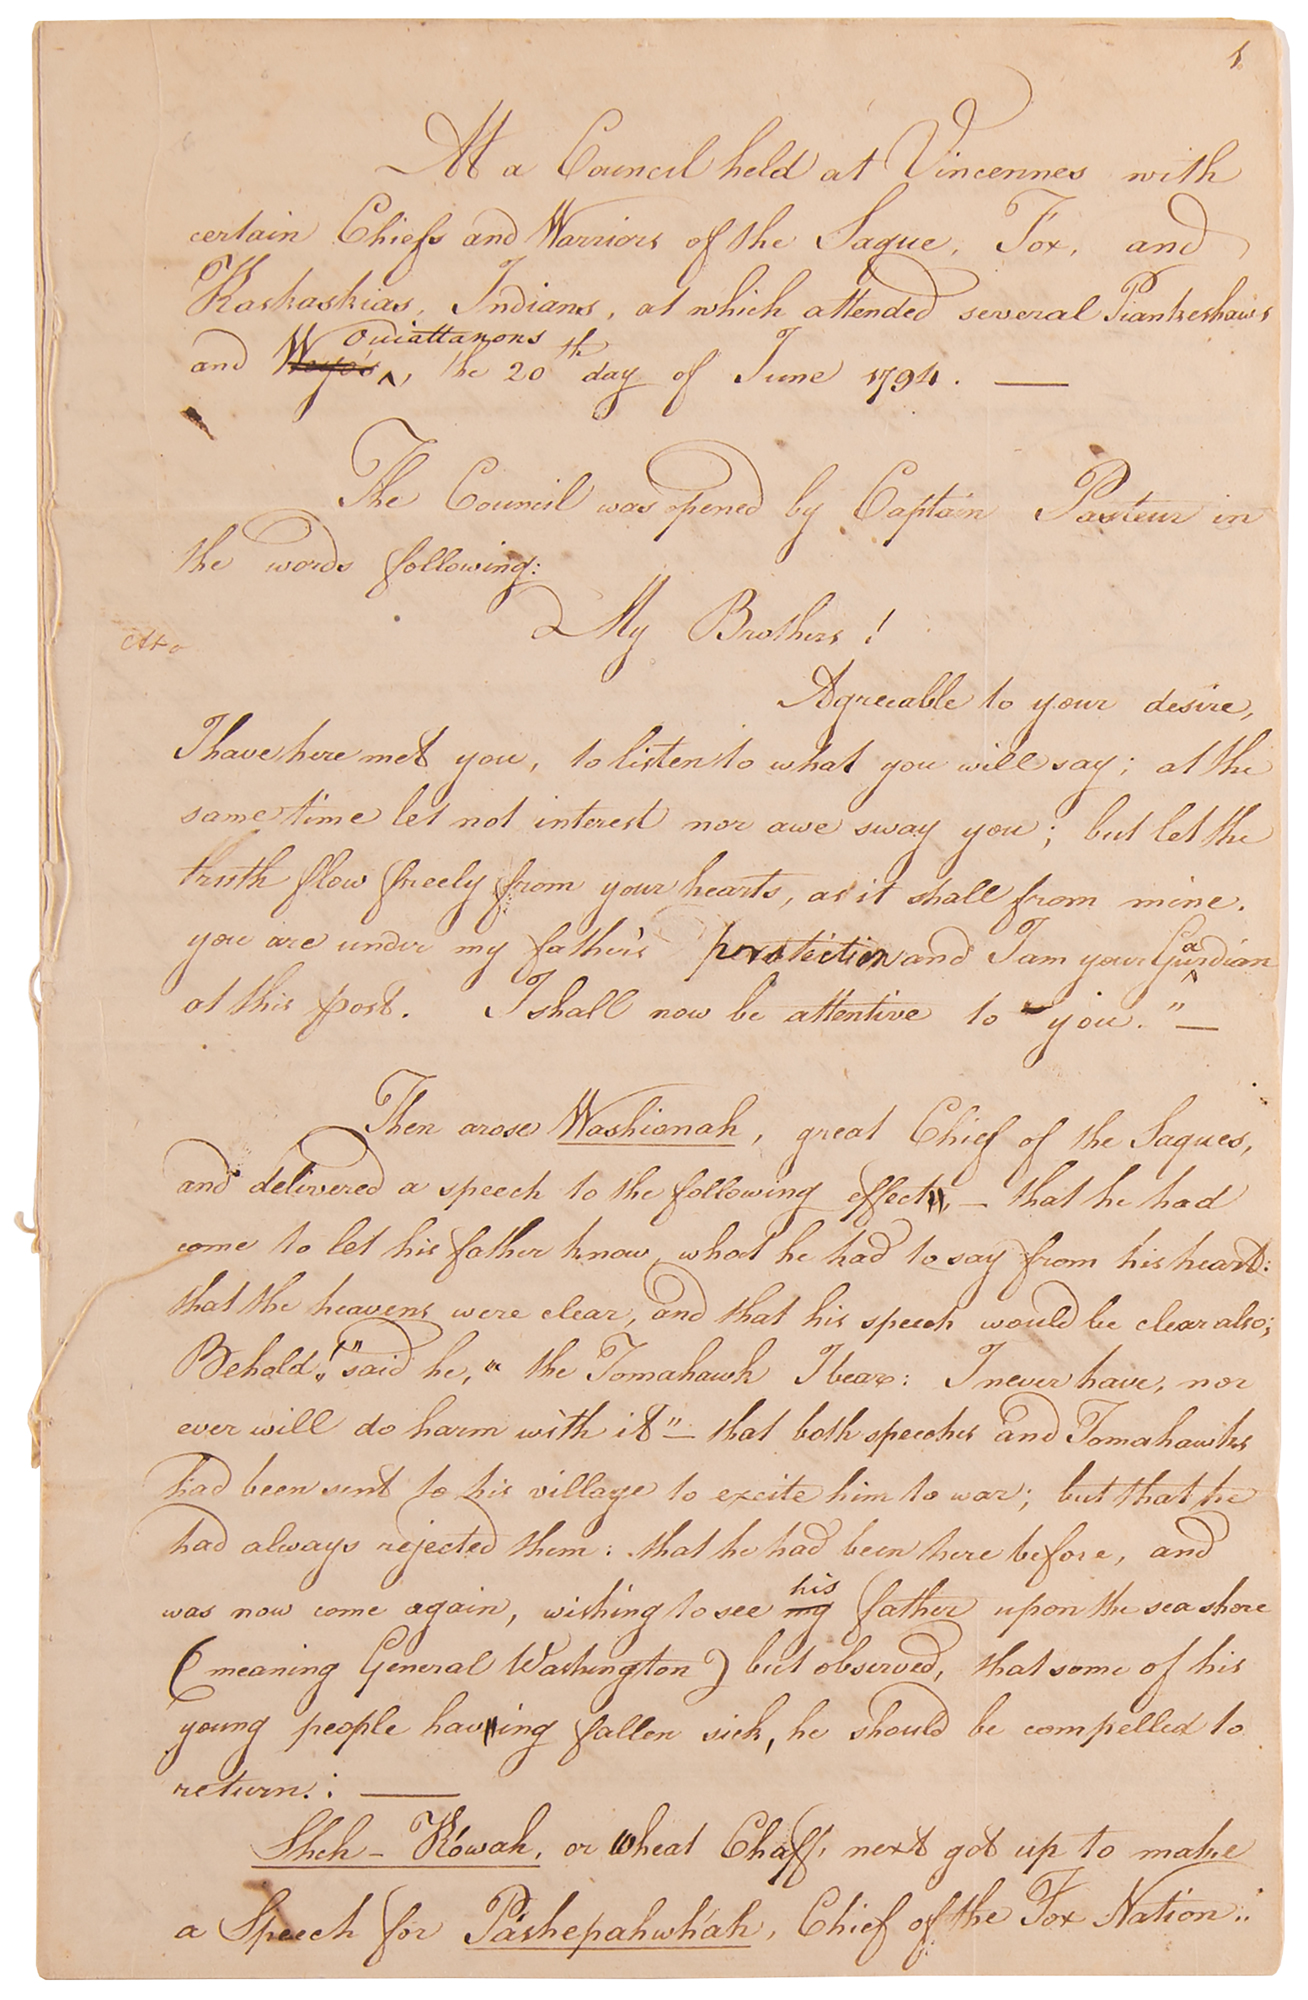 1
At a Council held at Vincennes with
certain Chiefs and Warriors of the Saque, Fox, and
Kaskaskias, Indians, at which attended several Piankeshaws
Ouiattanons
and Weyo's ^, the 20th day of June 1794. —
The Council was opened by Captain Pasteur in
the words following:
My Brothers!
Agreeable to your desire,
I have here met you, to listen to what you will say; at the
same time let not interest nor awe sway you; but let the
truth flow freely from your hearts, as it shall from mine.
you are under my father's protection and I am your Guardian
at this post. I shall now be attentive to you." —
Then arose Washionah, great Chief of the Saques,
and delivered a speech to the following effect, — that he had
come to let his father know, what he had to say from his heart:
that the heavens were clear, and that his speech would be clear also;
Behold!" said he, " the Tomahawk I bear: I never have, nor
ever will do harm with it" — that both speeches and Tomahawks
had been sent to his village to excite him to war; but that he
had always rejected them: that he had been here before, and
his
was now come again, wishing to see my father upon the sea shore
(meaning General Washington) but observed, that some of his
young people having fallen sick, he should be compelled to
return.: —
Sheh - Kowah, or Wheat Chaff, next got up to make
a Speech for Pashepahwhah, Chief of the Fox Nation..